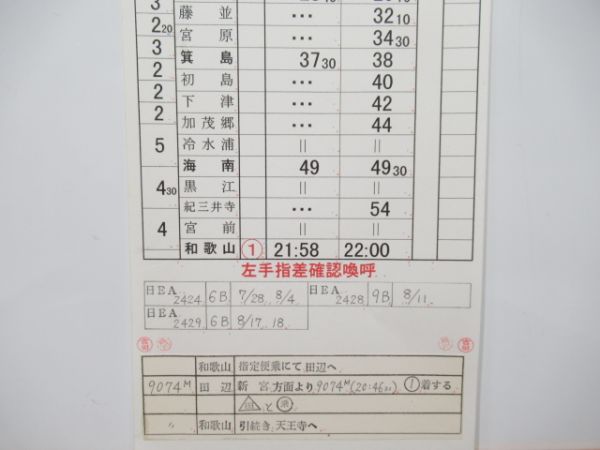 3
藤並 … 32 10
2 20
宮原 … 34 30
3
箕島 37 30 38
2
初島 … 40
2
下津 … 42
2
加茂郷 … 44
5
冷水浦 || ||
海南 49 49 30
4 30
黒江 || ||
紀三井寺 … 54
4
宮前 || ||
和歌山 ① 21:58 22:00
左手指差確認喚呼
日EA 2424 6B 7/28. 8/4. 日EA 2428 9B 8/11.
日EA 2429 6B 8/17. 18.
和歌山 指定便乗にて 田辺へ
9074M 田辺 新宮方面より 9074M (20:46) ①着する
と
〃 和歌山 引続き 天王寺へ